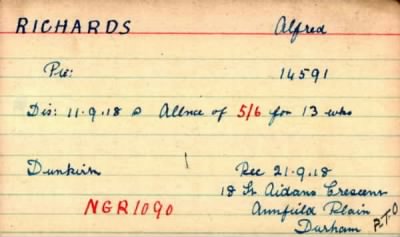 RICHARDS Alfred
Pte: 14591
Dis: 11.9.18 @ Allnce of 5/6 for 13 wks
Dunkirn Rec 21.9.18
18 St Aidans Crescent
NGR1090 Annfield Plain
Durham P.T.O